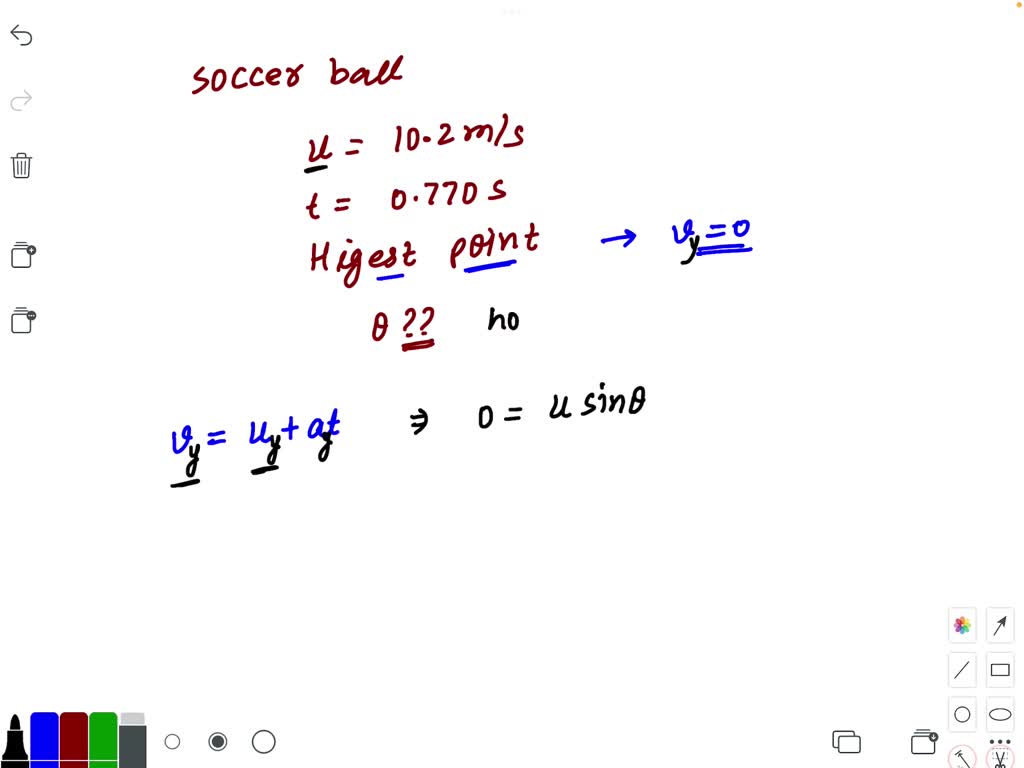 soccer ball
u = 10.2 m/s
t = 0.770 s
Higest point → vy = 0
θ ?? no
vy = uy + ayt ⇒ 0 = u sinθ